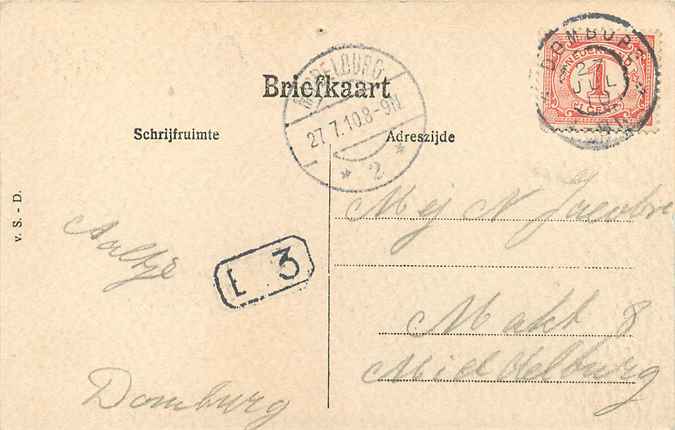 DOMBURG
27
JUL
10
NEDERLAND
1
MIDDELBURG
27.7.10.8-9N
* 2 *
Briefkaart
Schrijfruimte
Adreszijde
v. S. - D.
Mej N
Aaltje
L 3
Markt 8
Middelburg
Domburg